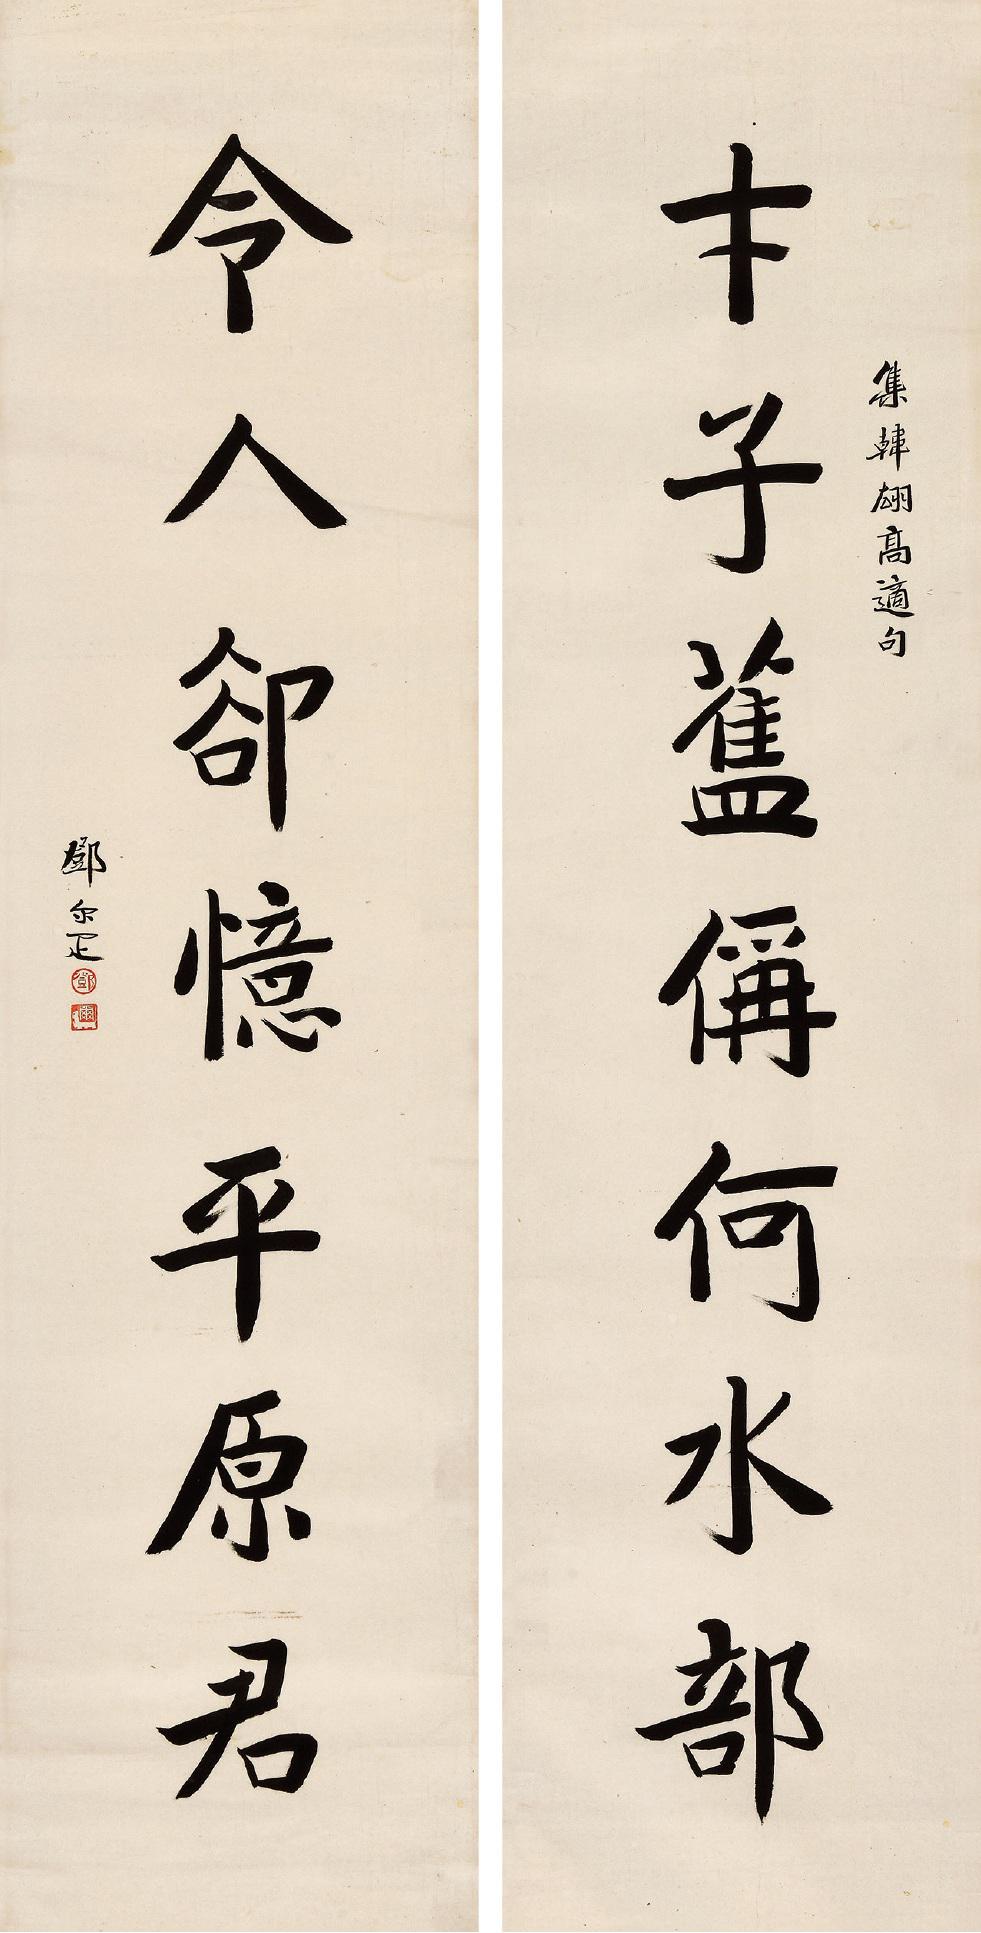 才子舊偁何水部
集韓翃高適句
令人卻憶平原君
鄧尔疋
鄧
爾